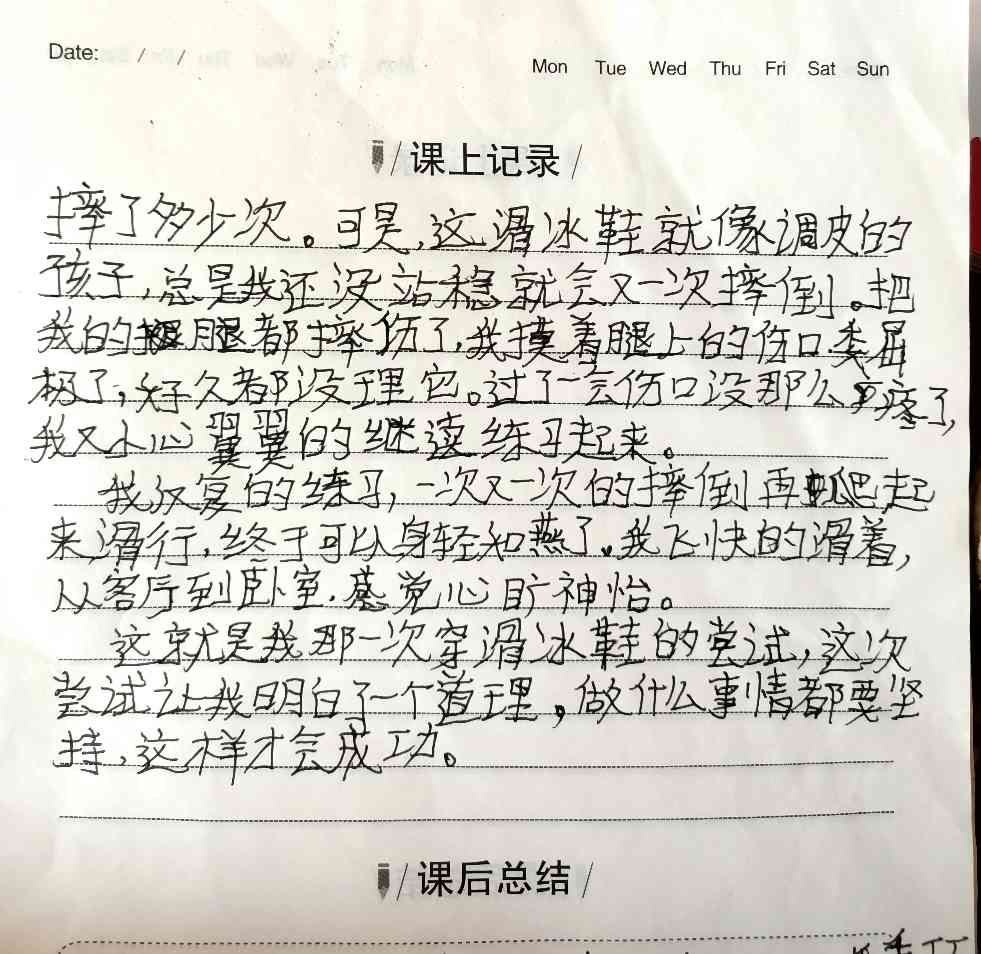 Date: / /
Mon Tue Wed Thu Fri Sat Sun
课上记录
摔了多少次。可是,这滑冰鞋就像调皮的
孩子,总是我还没站稳就会又一次摔倒。把
我的腿都摔伤了,我摸着腿上的伤口委屈
极了,好久都没理它。过了一会伤口没那么疼了,
我又小心翼翼的继续练习起来。
我反复的练习,一次又一次的摔倒再爬起
来,滑行,终于可以身轻如燕了。我飞快的滑着,
从客厅到卧室,感觉心旷神怡。
这就是我那一次穿滑冰鞋的尝试,这次
尝试让我明白了一个道理,做什么事情都要坚
持,这样才会成功。
课后总结